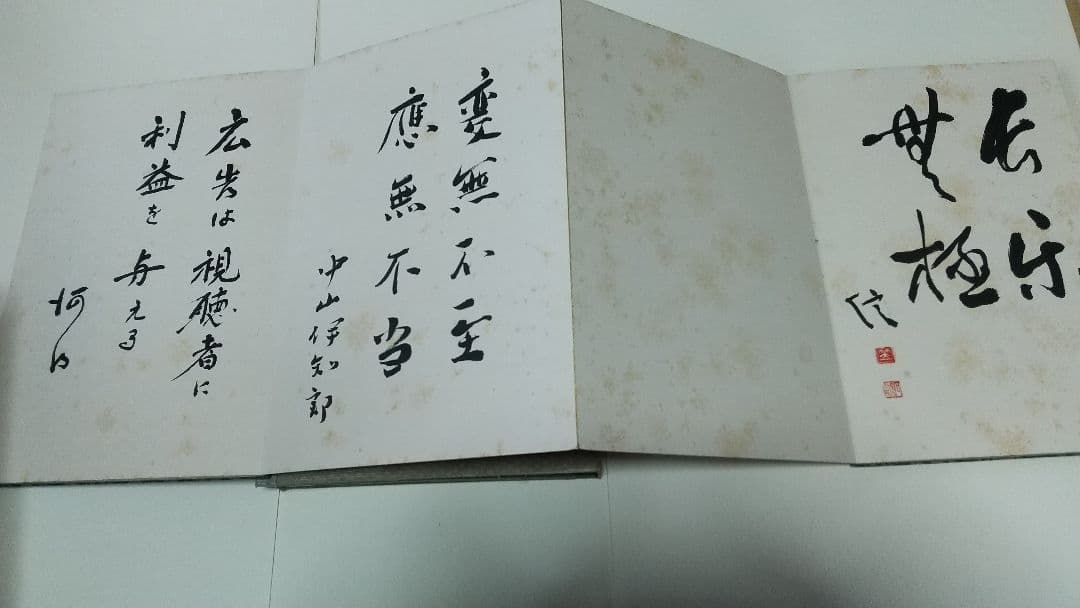 長乐
無極
信
変無不至
應無不当
中山伊知郎
広告は視聴者に
利益を与える